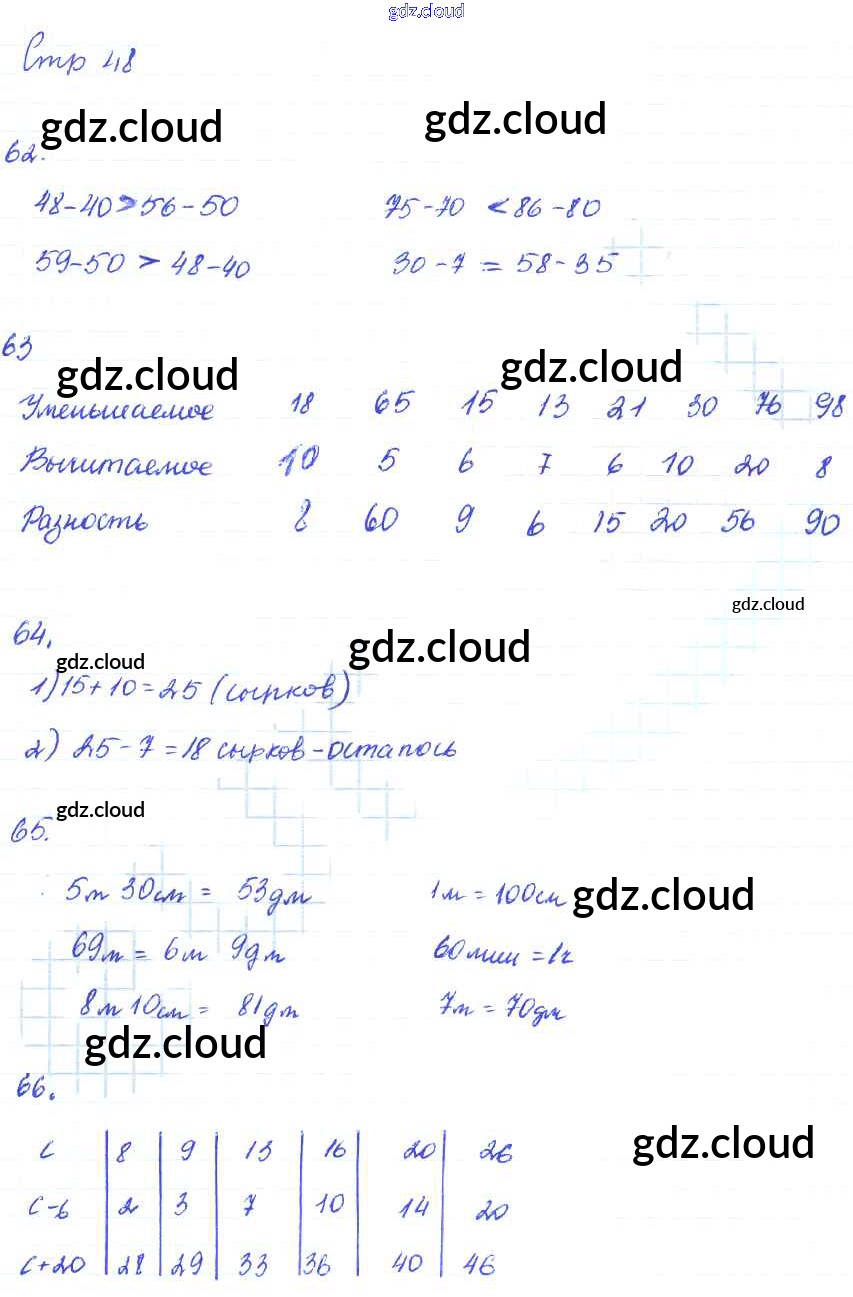 gdz.cloud
Стр 48
gdz.cloud gdz.cloud
62.
48-40>56-50 75-70 <86-80
59-50 > 48-40 30-7 = 58-35
63
gdz.cloud gdz.cloud
Уменьшаемое 18 65 15 13 21 30 76 98
Вычитаемое 10 5 6 7 6 10 20 8
Разность 8 60 9 6 15 20 56 90
gdz.cloud
64.
gdz.cloud gdz.cloud
1) 15+10=25 (сырков)
2) 25-7=18 сырков-осталось
gdz.cloud
65.
5м 30см = 53дм 1м = 100см gdz.cloud
69м = 6м 9дм 60мин = 1ч
8м 10см = 81дм 7м = 70дм
gdz.cloud
66.
с 8 9 13 16 20 26 gdz.cloud
с-6 2 3 7 10 14 20
с+20 28 29 33 36 40 46